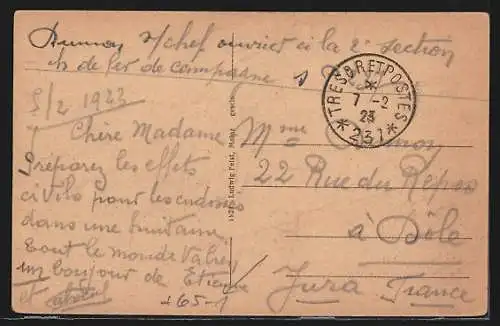 s/chef ouvrier à la 2e section
ch de fer de campagne
5/2 1923
Chère Madame
Préparez les effets
civils pour les endosser
dans une huitaine
Tout le monde va bien
un bonjour de Etienne
et
+65-1
1121 Ludwig Feist, Mainz
TRESOR ET POSTES
7 -2
23
*231*
Mme
22 Rue du Repos
à Dôle
Jura France